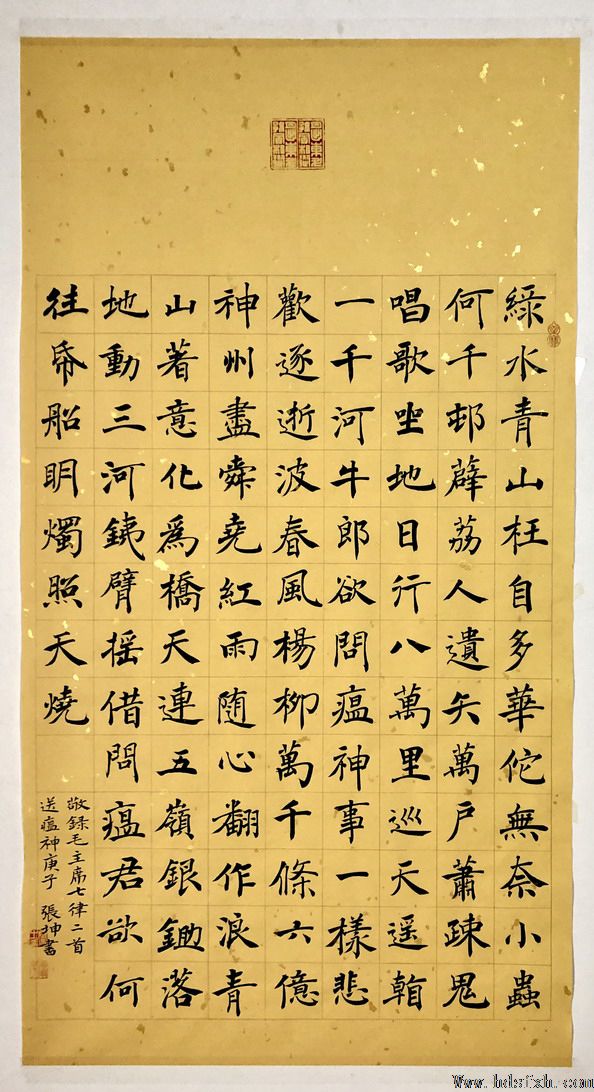 綠水青山枉自多華佗無奈小蟲
何千邨薜荔人遺矢萬戶蕭疎鬼
唱歌坐地日行八萬里巡天遥看
一千河牛郎欲問瘟神事一樣悲
歡逐逝波春風楊柳萬千條六億
神州盡舜堯紅雨随心翻作浪青
山著意化為橋天連五嶺銀鋤落
地動三河銕臂摇借問瘟君欲何
往帋船明燭照天燒
敬録毛主席七律二首
送瘟神庚子 張坤書